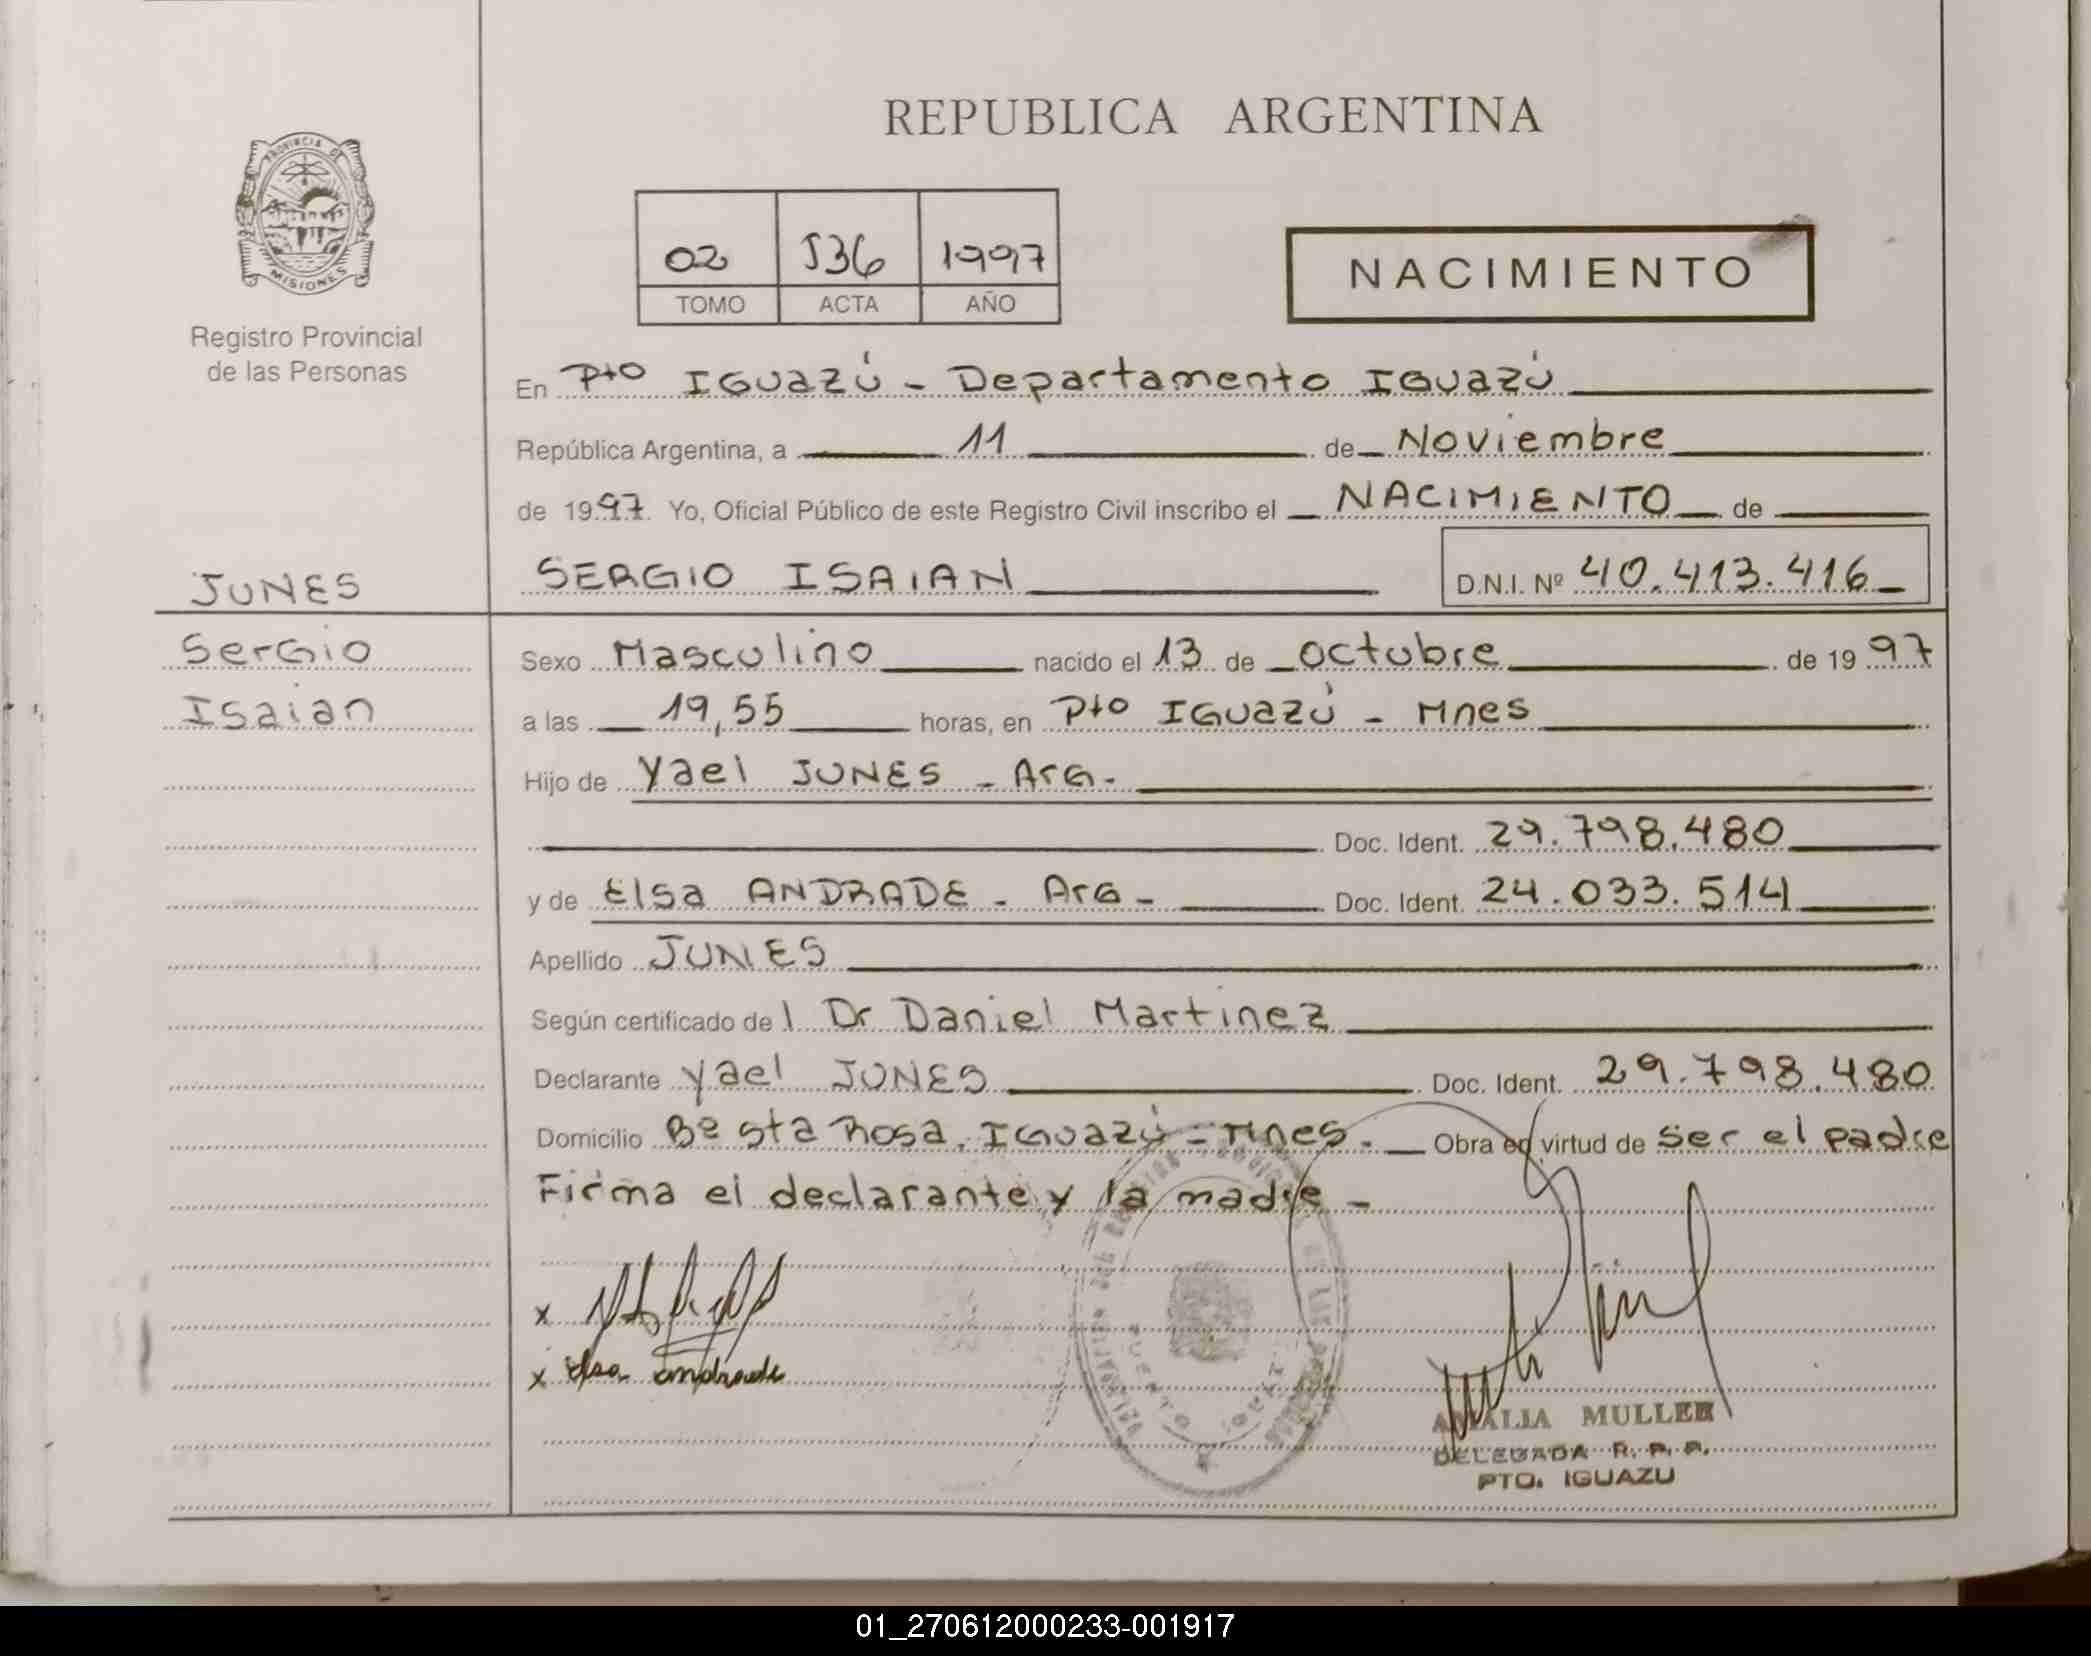 REPUBLICA ARGENTINA
PROVINCIA DE
MISIONES
Registro Provincial
de las Personas
02 536 1997
TOMO ACTA AÑO
NACIMIENTO
En Pto IGUAZÚ - Departamento IGUAZÚ
República Argentina, a 11 de Noviembre
de 1997. Yo, Oficial Público de este Registro Civil inscribo el NACIMIENTO de
JUNES
SERGIO ISAIAN D.N.I. Nº 40.413.416
Sergio
Isaian
Sexo Masculino nacido el 13 de octubre de 1997
a las 19,55 horas, en Pto IGUAZÚ - Mnes
Hijo de Yael JUNES - Arg.
Doc. Ident. 29.798.480
y de Elsa ANDRADE - Arg - Doc. Ident. 24.033.514
Apellido JUNES
Según certificado del Dr Daniel Martinez
Declarante Yael JUNES Doc. Ident. 29.798.480
Domicilio Bº Sta Rosa. IGUAZÚ - Mnes. Obra en virtud de ser el padre
Firma el declarante y la madre -
x
x elsa andrade
AMALIA MULLER
DELEGADA R. P. P.
PTO. IGUAZU
01_270612000233-001917